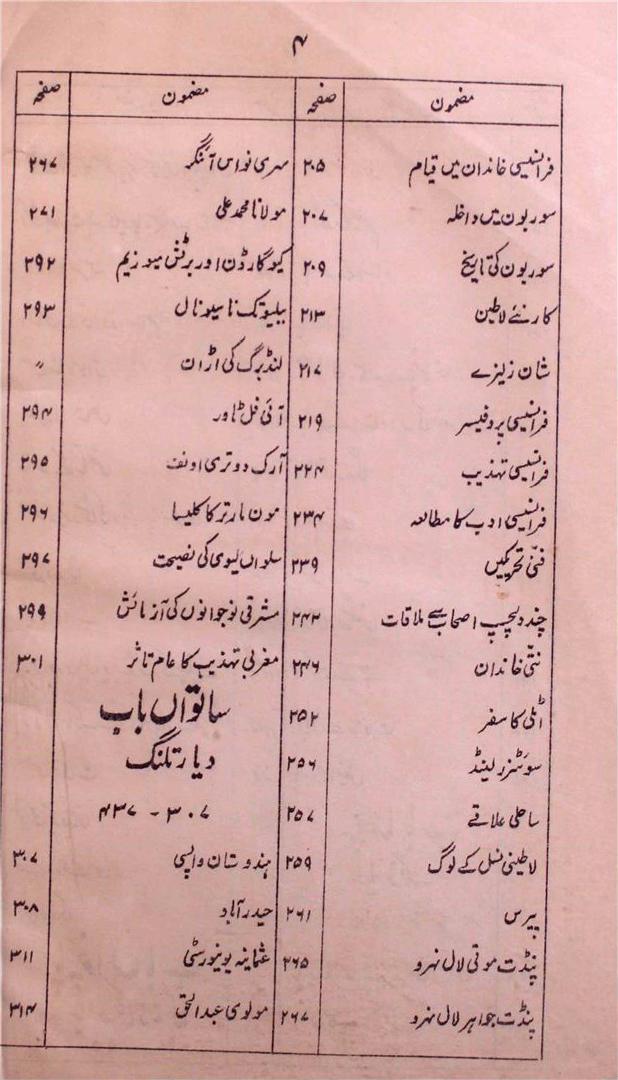 ۴
مضمون صفحہ
فرانسیسی خاندان میں قیام ۲۰۵
سوربون میں داخلہ ۲۰۷
سوربون کی تاریخ ۲۰۹
کارنئے لاطین ۲۱۳
شان زیلزے ۲۱۷
فرانسیسی پروفیسر ۲۱۹
فرانسیسی تہذیب ۲۲۴
فرانسیسی ادب کا مطالعہ ۲۳۴
فنّی تحریکیں ۲۳۹
چند دلچسپ اصحاب سے ملاقات ۲۴۲
نٹی خاندان ۲۴۶
اٹلی کا سفر ۲۵۲
سوئٹزرلینڈ ۲۵۶
ساحلی علاقے ۲۵۷
لاطینی نسل کے لوگ ۲۵۹
پیرس ۲۶۱
پنڈت موتی لال نہرو ۲۶۵
پنڈت جواہر لال نہرو ۲۶۷
مضمون صفحہ
سری نواس آئنگر ۲۶۷
مولانا محمد علی ۲۷۱
کیو گارڈن اور برٹش میوزیم ۲۹۲
ببلیوتک ناسیونال ۲۹۳
لنڈبرگ کی اڑان 〃
آئی فل ٹاور ۲۹۴
آرک دوتری اونف ۲۹۵
مون مارتر کا کلیسا ۲۹۶
سلواں لیوی کی نصیحت ۲۹۷
مشرقی نوجوانوں کی آزمائش ۲۹۹
مغربی تہذیب کا عام تاثر ۳۰۱
ساتواں باب
دیار تلنگ
۳۰۷ - ۴۳۷
ہندوستان واپسی ۳۰۷
حیدرآباد ۳۰۸
عثمانیہ یونیورسٹی ۳۱۱
مولوی عبدالحق ۳۱۴